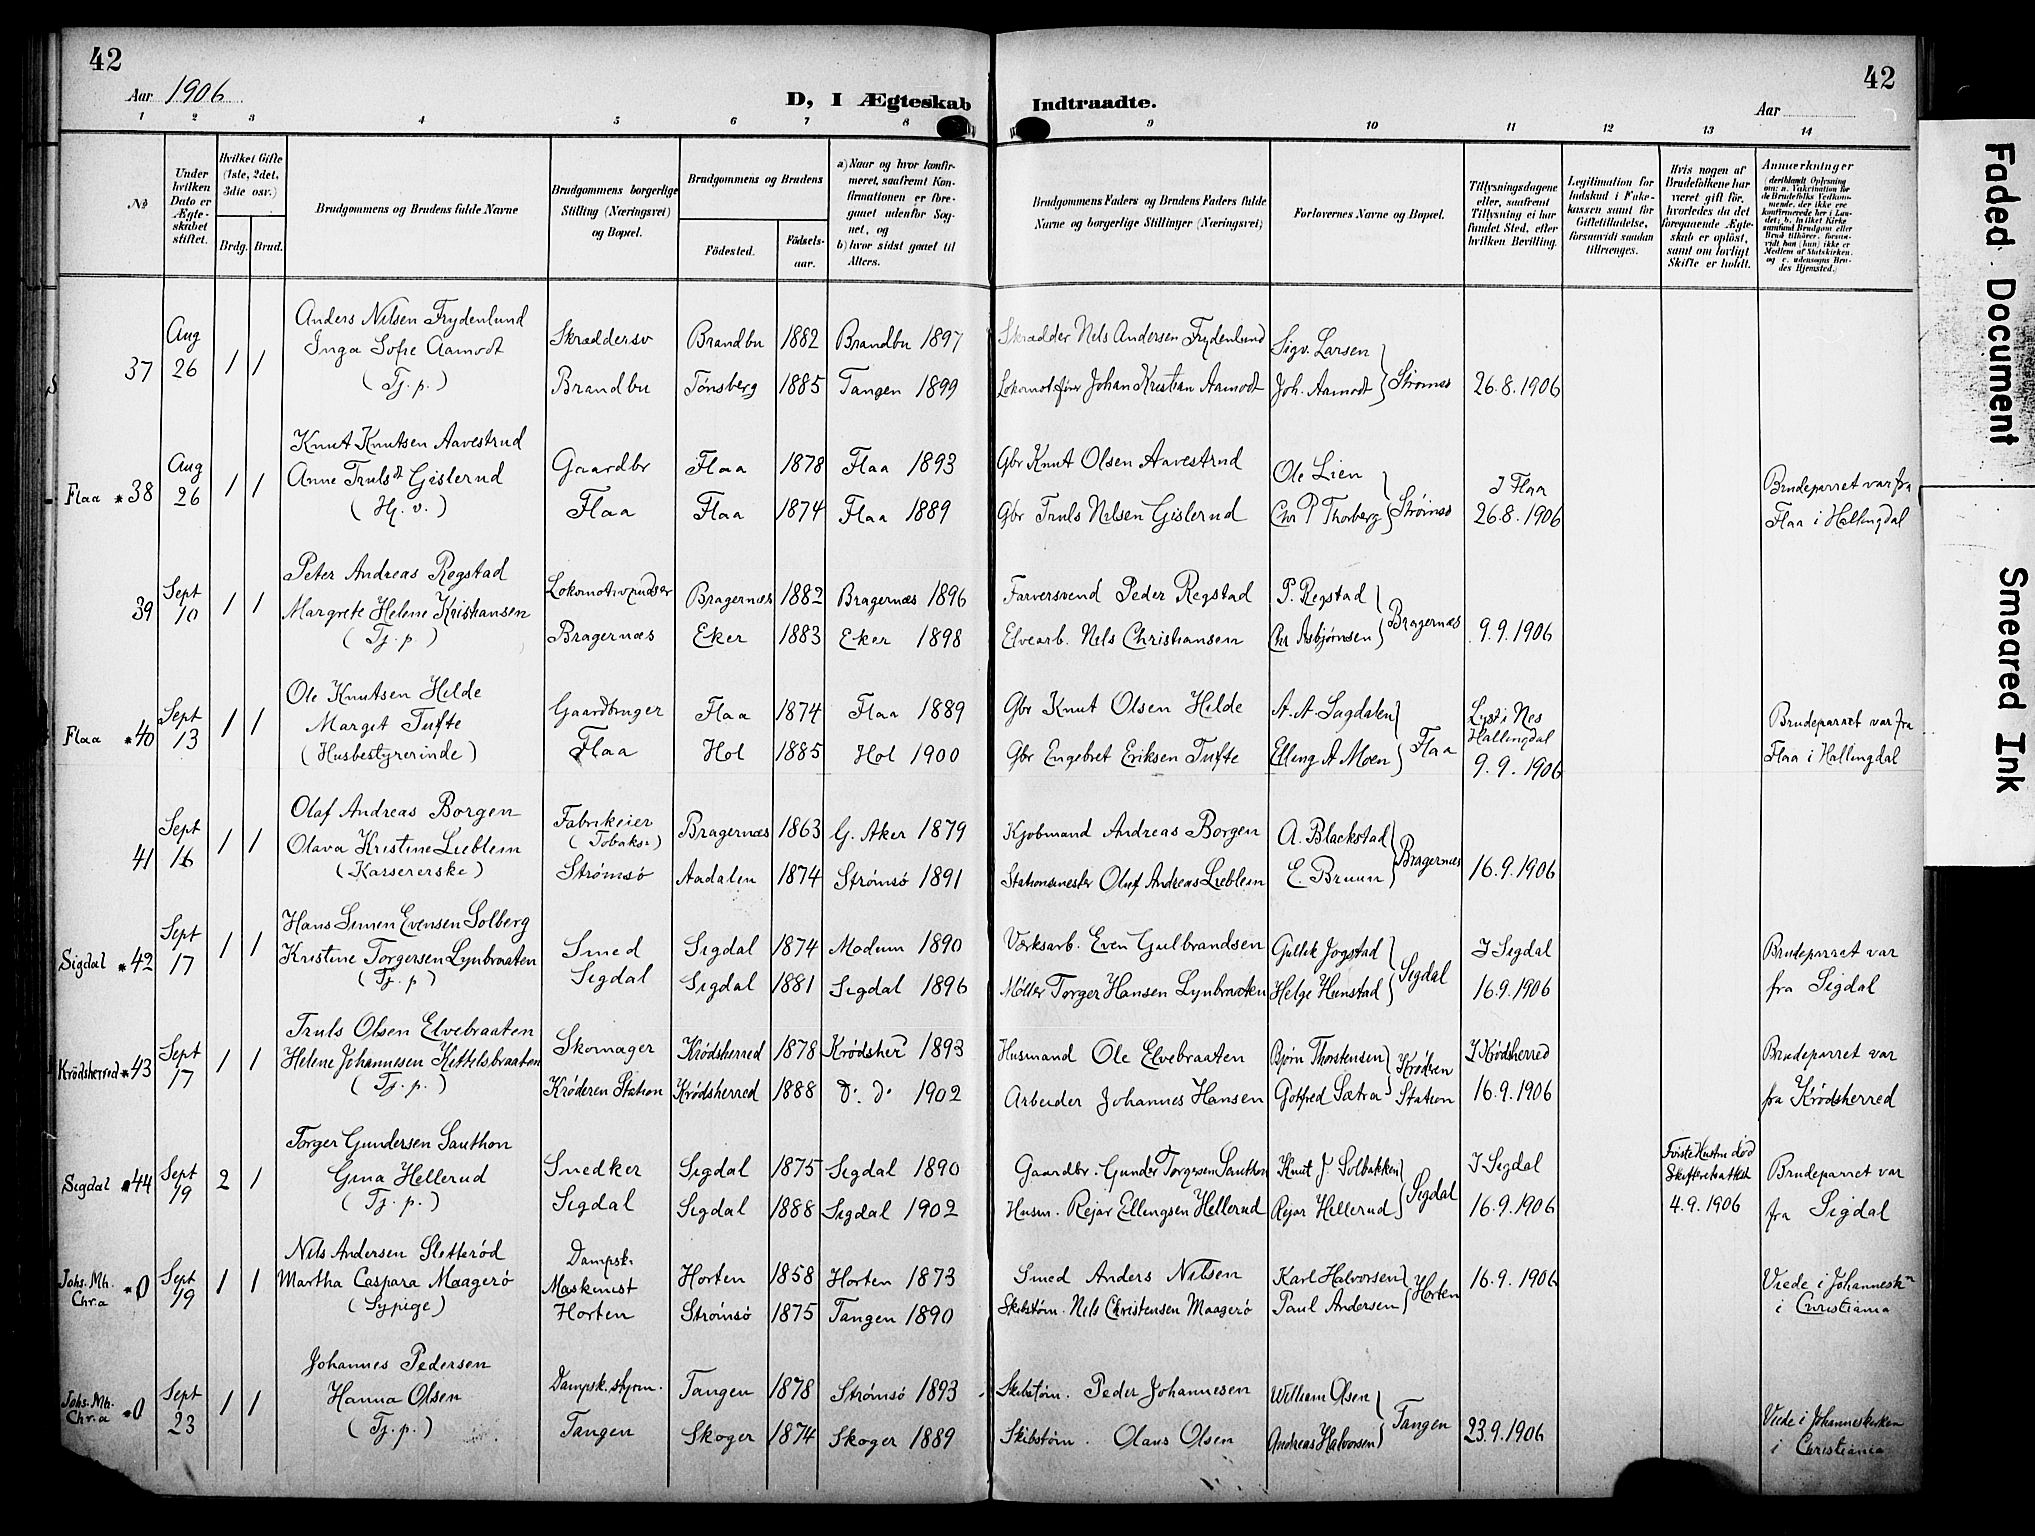 42
42
Aar 1906
D, I Ægteskab Indtraadte.
Aar
1 2 3 4 5 6 7 8 9 10 11 12 13 14
No
Under hvilken Dato er Ægteskabet stiftet.
Hvilket Gifte (1ste, 2det, 3die osv.)
Brdg. Brud.
Brudgommens og Brudens fulde Navne
Brudgommens borgerlige Stilling (Næringsvei) og Bopæl.
Brudgommens og Brudens
Födested.
Födselsaar.
a) Naar og hvor konfirmeret, saafremt Konfirmationen er foregaaet udenfor Sognet, og
b) hvor sidst gaaet til Alters.
Brudgommens Faders og Brudens Faders fulde Navne og borgerlige Stillinger (Næringsvei)
Forlovernes Navne og Bopæl.
Tillysningsdagene eller, saafremt Tillysning ei har fundet Sted, efter hvilken Bevilling.
Legitimation for Indskud i Enkekassen samt for Giftetilladelse, forsaavidt saadan tiltrænges.
Hvis nogen af Brudefolkene har været gift før, hvorledes da det foregaaende Ægteskab er oplöst, samt om lovligt Skifte er holdt.
Anmærkninger
(deriblandt Oplysning om: a. Vakcination for de Brudefolks Vedkommende, der ikke ere konfirmerede her i Landet; b. hvilket Kirkesamfund Brudgom eller Brud tilhörer, forsaavidt han (hun) ikke er Medlem af Statskirken, og c. udensogns Brudes Hjemsted.)
37 Aug 26 1 1
Anders Nilsen Frydenlund
Inga Sofie Aamodt
(Tj. p.)
Skræddersv
Brandbu
Brandbu 1882 Brandbu 1897
Tönsberg 1885 Tangen 1899
Skrædder Nels Andersen Frydenlund
Lokomotfører Johan Kristian Aamodt
Sigv. Larsen
Joh. Aamodt } Strømsø
26.8.1906
Flaa * 38 Aug 26 1 1
Knut Knutsen Aavestrud
Anne Trulsdt Gislerud
(Hj. v.)
Gaardbr
Flaa
Flaa 1878 Flaa 1893
Flaa 1874 Flaa 1889
Gbr Knut Olsen Aavestrud
Gbr Truls Nilsen Gislerud
Ole Lien
Chr P Thorberg } Strømsö
I Flaa
26.8.1906
Brudeparret var fra
Flaa i Hallingdal
39 Sept 10 1 1
Peter Andreas Regstad
Margrete Helene Kristiansen
(Tj. p.)
Lokomotivpudser
Bragernæs
Bragernæs 1882 Bragernæs 1896
Eker 1883 Eker 1898
Farversvend Peder Regstad
Elvearb. Nels Christiansen
P. Regstad
Chr Asbjørnsen } Bragernæs
9.9.1906
Flaa * 40 Sept 13 1 1
Ole Knutsen Hilde
Marget Tufte
(Husbestyrerinde)
Gaardbruger
Flaa
Flaa 1874 Flaa 1889
Hol 1885 Hol 1900
Gbr Knut Olsen Hilde
Gbr Engebret Eriksen Tufte
A. A. Sagdalen
Elling A Moen } Flaa
Lyst i Nes
Hallingdal
9.9.1906
Brudeparret var fra
Flaa i Hallingdal
41 Sept 16 1 1
Olaf Andreas Borgen
Olava Kristine Lieblein
(Kassererske)
Fabrikeier
(Tobaks-)
Strømsö
Bragernæs 1863 G. Aker 1879
Aadalen 1874 Strømsö 1891
Kjøbmand Andreas Borgen
Stationsmester Oluf Andreas Lieblein
A. Blackstad
E. Bruun } Bragernæs
16.9.1906
Sigdal * 42 Sept 17 1 1
Hans Simen Evensen Solberg
Kristine Torgersen Lynbraaten
(Tj. p)
Smed
Sigdal
Sigdal 1874 Modum 1890
Sigdal 1881 Sigdal 1896
Værksarb. Even Gulbrandsen
Møller Torger Hansen Lynbraaten
Gullik Jogstad
Helge Hunstad } Sigdal
I Sigdal
16.9.1906
Brudeparret var
fra Sigdal
Krödsherred * 43 Sept 17 1 1
Truls Olsen Elvebraaten
Helene Johannesen Kittelsbraaten
(Tj. p.)
Skomager
Krøderen Station
Krødsherred 1878 Krødsher 1893
Krødsherred 1888 do. do 1902
Husmand Ole Elvebraaten
Arbeider Johannes Hansen
Bjørn Thorstensen
Gotfred Sætra } Krøderen Station
I Krødsherred
16.9.1906
Brudeparret var
fra Krødsherred
Sigdal * 44 Sept 19 2 1
Torger Gundersen Sauthon
Gina Hellerud
(Tj. p.)
Snedker
Sigdal
Sigdal 1875 Sigdal 1890
Sigdal 1888 Sigdal 1902
Gaardbr. Gunder Torgersen Sauthon
Husm. Rejar Ellingsen Hellerud
Knut J Solbakken
Rejar Hellerud } Sigdal
I Sigdal
16.9.1906
Første Hustru död
Skifteretsattest
4.9.1906
Brudeparret var
fra Sigdal
Johs. Mh. Chr.a * 0 Sept 19 1 1
Nils Andersen Sletterød
Martha Caspara Maagerö
(Sypige)
Dampsk.
Maskinist
Horten
Horten 1858 Horten 1873
Strømsö 1875 Tangen 1890
Smed Anders Nilsen
Skibstøm. Nels Christensen Maagerö
Karl Halvorsen
Paul Andersen } Horten
16.9.1906
Viede i Johannesk.n
i Christiania
Johs. Mh. Chr.a * 0 Sept 23 1 1
Johannes Pedersen
Hanna Olsen
(Tj. p.)
Dampsk. styrm.
Tangen
Tangen 1878 Strømsö 1893
Skoger 1874 Skoger 1889
Skibstøm. Peder Johannesen
Skibstøm. Olaus Olsen
William Olsen
Andreas Halvorsen } Tangen
23.9.1906
Viede i Johanneskirken
i Christiania
Faded Document
Smeared Ink